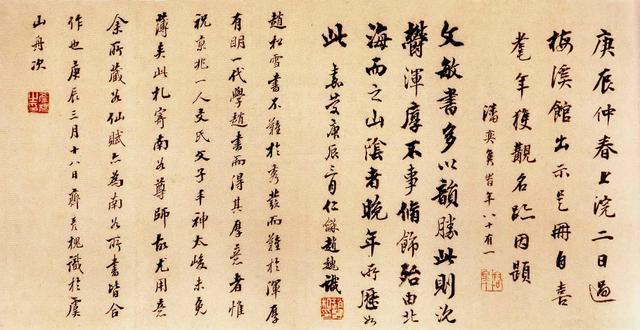 庚辰仲春上浣二日過
梅溪館出示是冊自喜
耄年獲觀名跡因題
潘奕雋時年八十有一
文敏書多以韻勝此則沈
鬱渾厚不事脩飾殆由北
海而之山陰者晚年所歷如
此 嘉慶庚辰二月仁龢趙魏識
趙松雪書不難於秀發而難於渾厚
有明一代學趙書而得其厚意者惟
祝京兆一人文氏父子丰神太峻未免
薄矣此札寄南谷尊師故尤用意
余所藏仙賦亦為南谷所書皆合
作也庚辰三月十八日齊彥槐識於虞
山舟次